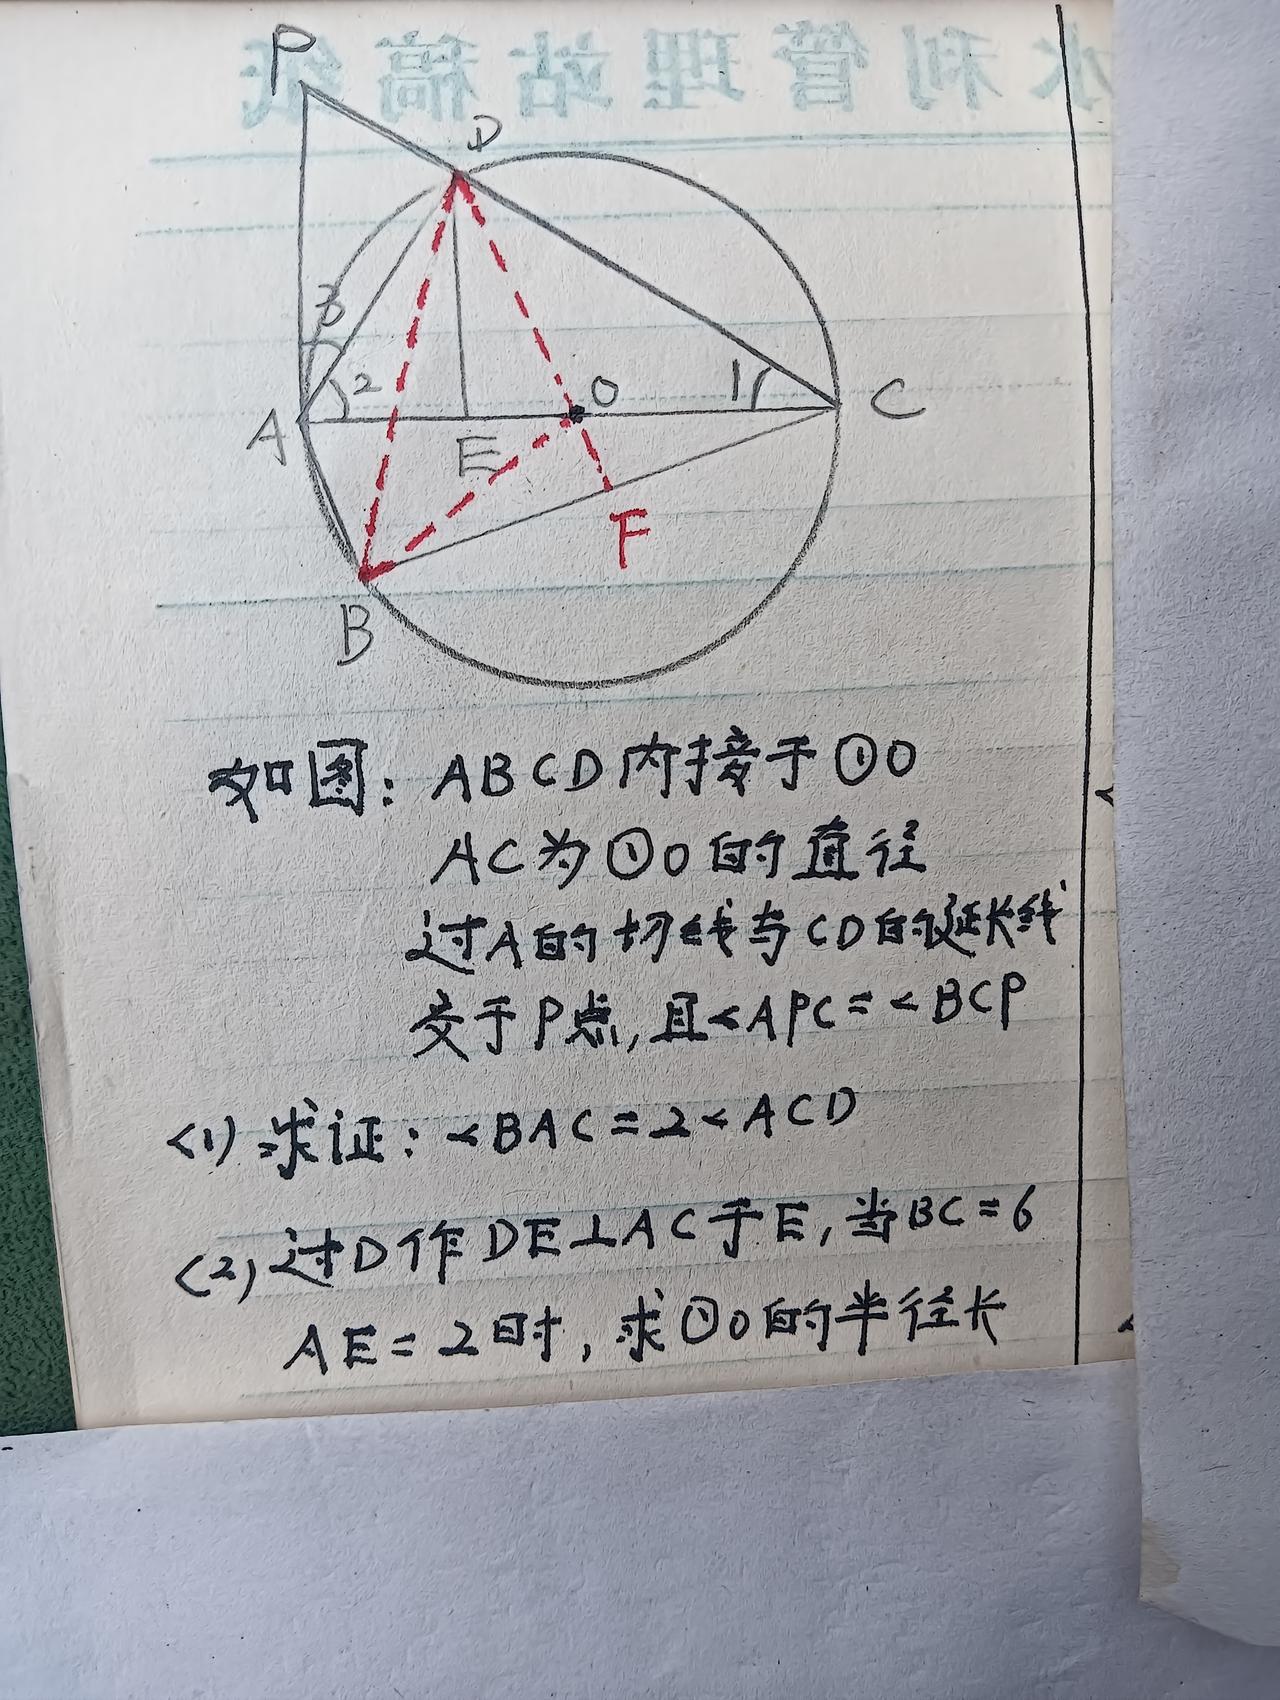 水利管理站稿纸
P
D
3
2
1
O
C
A
E
F
B
如图: ABCD内接于⊙O
AC为⊙O的直径
过A的切线与CD的延长线
交于P点,且<APC=<BCP
(1) 求证: <BAC=2<ACD
(2) 过D作DE⊥AC于E,当BC=6
AE=2时,求⊙O的半径长